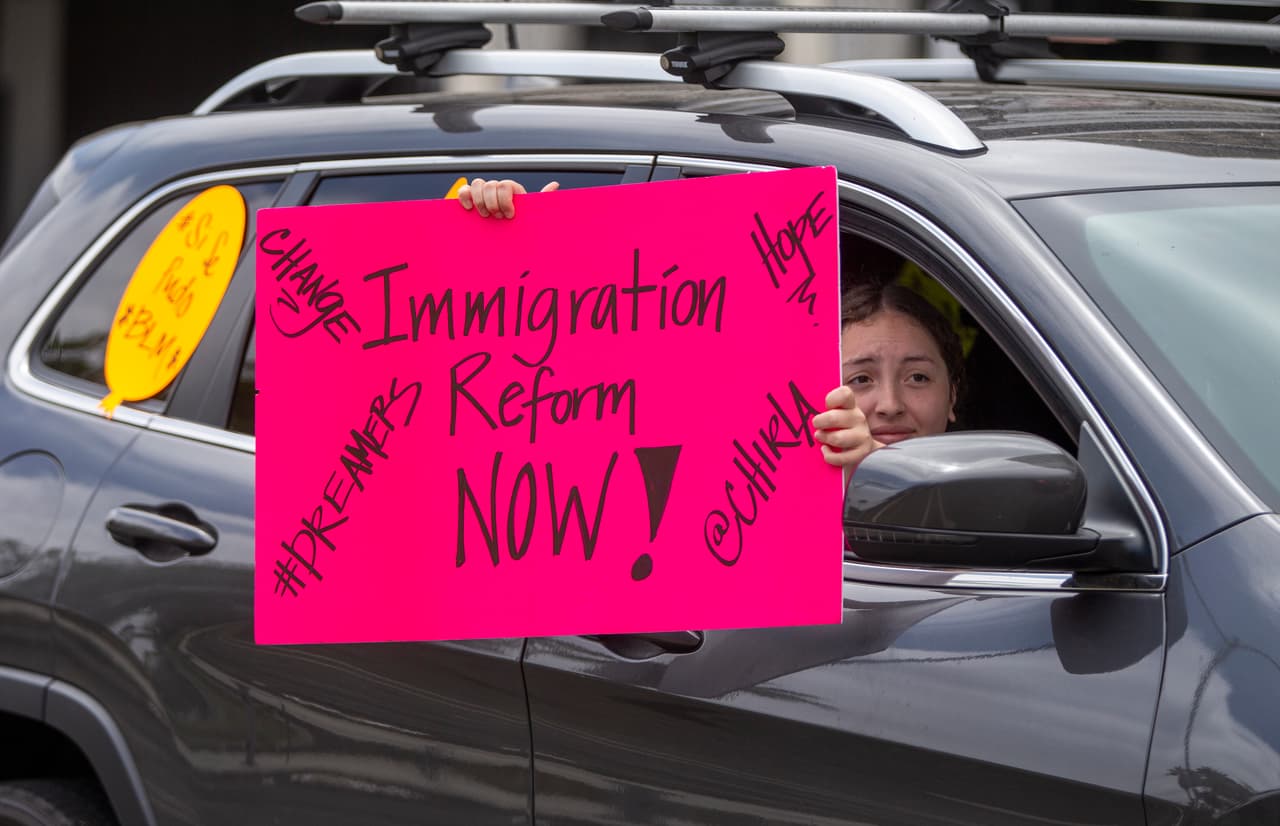 #Si Se
Pudo
#BLM#
CHANGE
HOPE
Immigration
Reform
NOW!
#DREAMERS
@CHIRLA
THULE